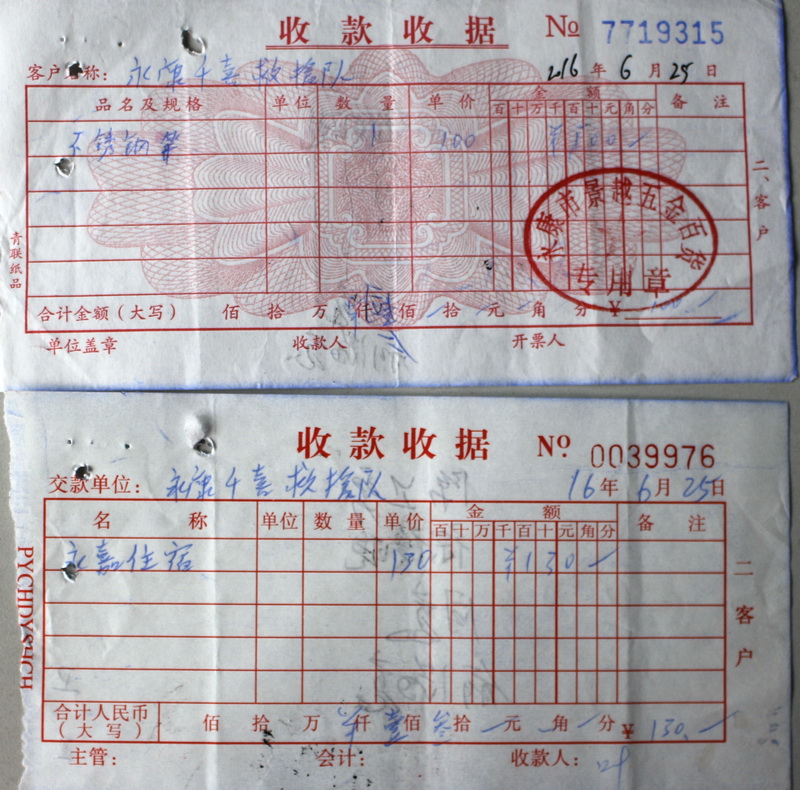 收款收据 № 7719315
客户名称： 永康千喜救援队 2016 年 6 月 25 日
品名及规格 单位 数量 单价 金额 备注
百 十 万 千 百 十 元 角 分
不锈钢 1 100 ¥100-
二、客户
青联纸品
景越五金百货
专用章
合计金额（大写） 佰 拾 万 仟 佰 拾 元 角 分 ¥ 100.-
单位盖章 收款人 开票人
收款收据 № 0039976
交款单位： 永康千喜救援队 16 年 6 月 25 日
名称 单位 数量 单价 金额 备注
百 十 万 千 百 十 元 角 分
永嘉住宿 130 ¥130-
二 客户
PYCHDYSHCH
合计人民币（大写） 佰 拾 万 仟 壹 佰 叁 拾 元 角 分 ¥ 130.-
主管： 会计： 收款人： 叶